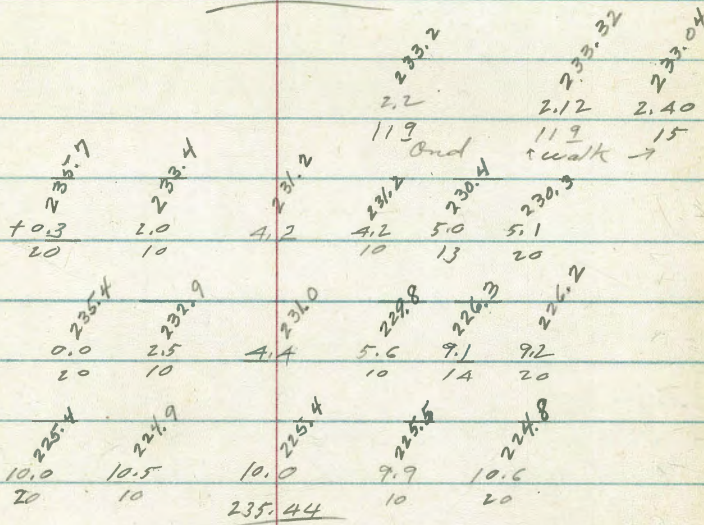 233.2 233.32 233.04
2.2 2.12 2.40
119 119 15
Ond ↑walk →
235.7 233.4 231.2 231.2 230.4 230.3
+0.3 2.0 4.2 4.2 5.0 5.1
20 10 10 13 20
235.4 232.9 231.0 229.8 226.3 226.2
0.0 2.5 4.4 5.6 9.1 9.2
20 10 10 14 20
225.4 224.9 225.4 225.5 224.8
10.0 10.5 10.0 9.9 10.6
20 10 10 20
235.44